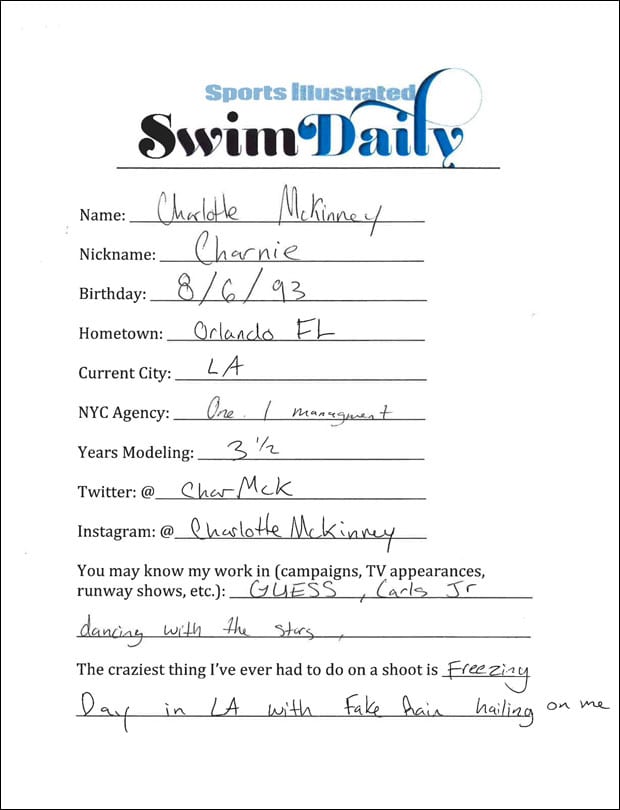 Sports Illustrated
Swim Daily
Name: Charlotte McKinney
Nickname: Charnie
Birthday: 8/6/93
Hometown: Orlando FL
Current City: LA
NYC Agency: One. 1 managment
Years Modeling: 3 1/2
Twitter: @ CharMcK
Instagram: @ CharlotteMcKinney
You may know my work in (campaigns, TV appearances,
runway shows, etc.): GUESS, Carls Jr
dancing with the stars,
The craziest thing I've ever had to do on a shoot is Freezing
Day in LA with Fake Rain hailing on me